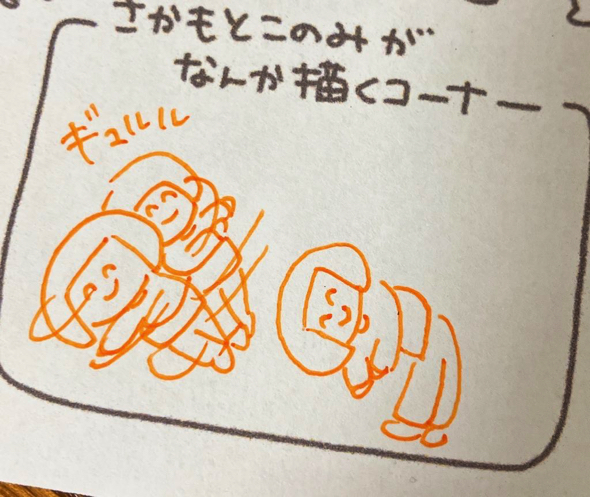 さかもとこのみが
なんか描くコーナー
ギュルル